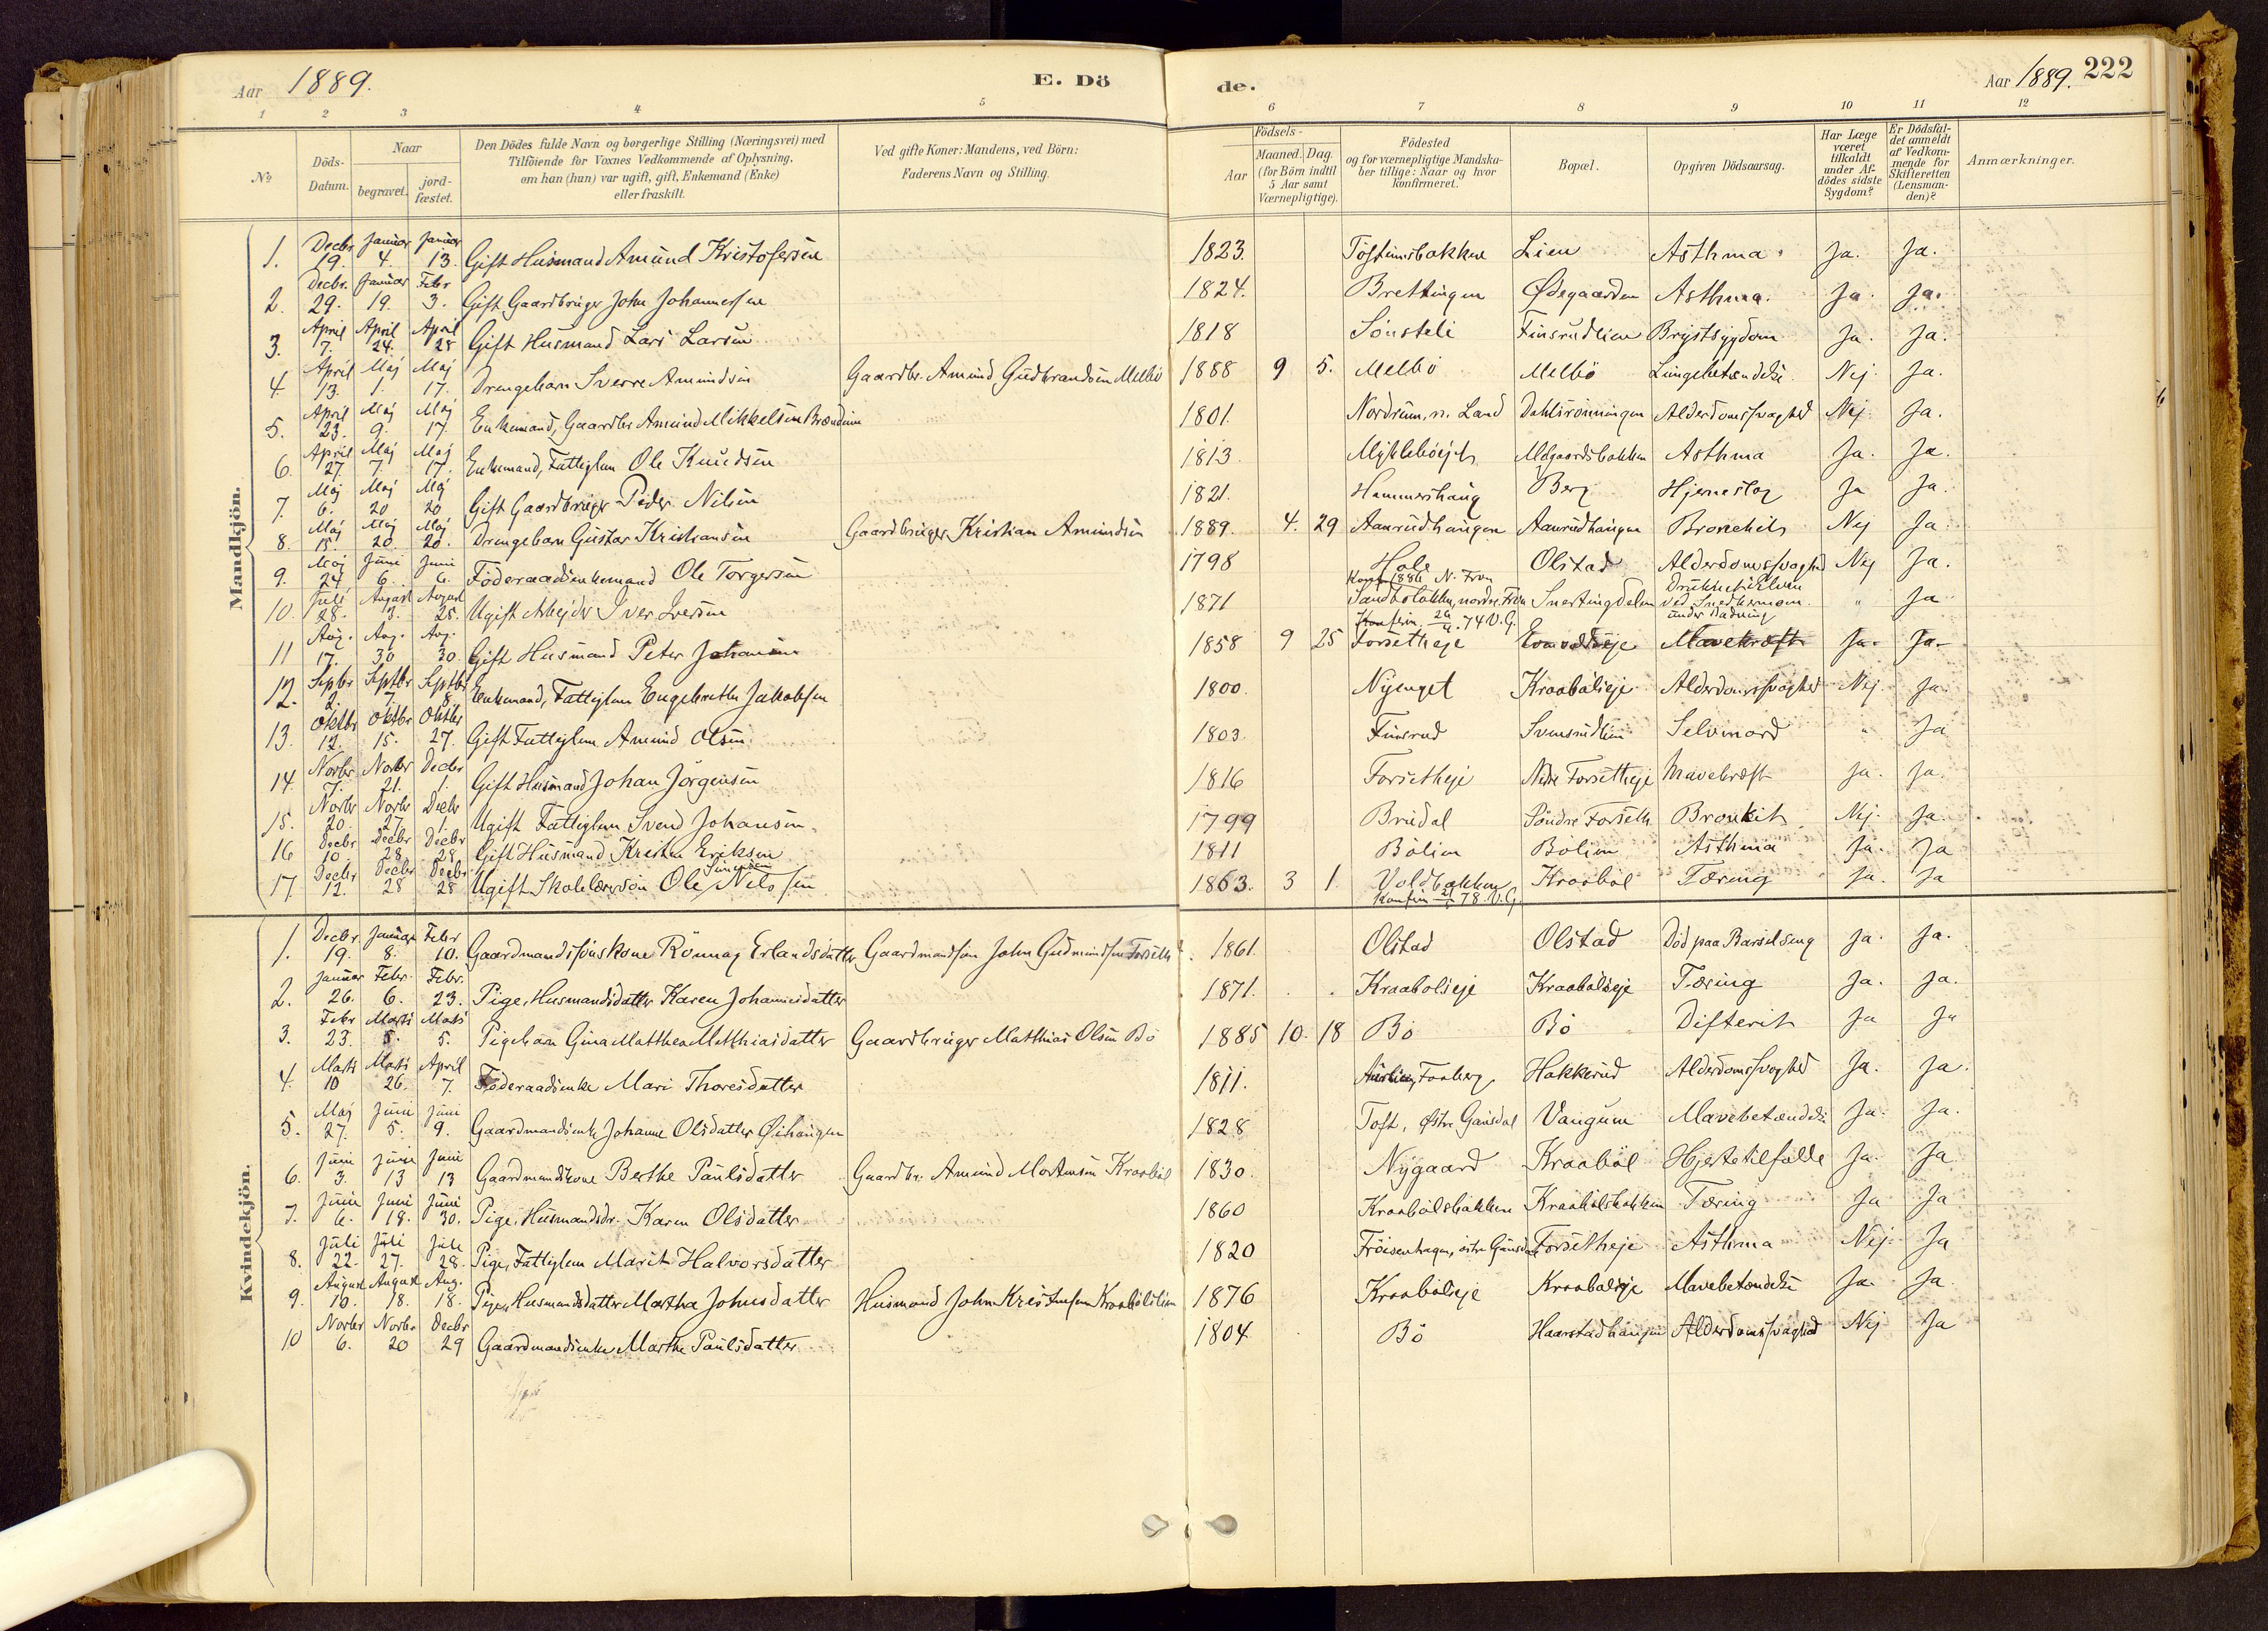 Aar 1889. E. Dö
de. Aar 1889. 222
1 2 3 4 5 6 7 8 9 10 11 12
№ Döds-Datum. Naar begravet. jordfæstet. Den Dödes fulde Navn og borgerlige Stilling (Næringsvei) med Tilföiende for Voxnes Vedkommende af Oplysning, om han (hun) var ugift, gift, Enkemand (Enke) eller fraskilt. Ved gifte Koner: Mandens, ved Börn: Faderens Navn og Stilling. Födsels- Aar Maaned. Dag. (for Börn indtil 5 Aar samt Værnepligtige). Födested og for værnepligtige Mandskaber tillige: Naar og hvor konfirmeret. Bopæl. Opgiven Dödsaarsag. Har Læge været tilkaldt under Afdödes sidste Sygdom? Er Dödsfaldet anmeldt af Vedkommende for Skifteretten (Lensmanden)? Anmærkninger.
Mandkjön.
1. Decbr 19. Januar 4. Januar 13. Gift Husmand Amund Kristofersen 1823. Toftumsbakken Lien Asthma. Ja. Ja.
2. Decbr. 29. Januar 19. Febr 3. Gift Gaardbruger John Johannessen 1824. Brettingen Ødegaarden Asthma. Ja. Ja.
3. April 7. April 24. April 28 Gift Husmand Lars Larsen 1818 Sönsteli Finsrudlien Brystsygdom Ja. Ja.
4. April 13. Maj 1. Maj 17. Drengebarn Sverre Amundsen Gaardbr. Amund Gudbrandsen Melbö 1888 9 5. Melbö Melbö Lungebetændelse. Nej. Ja.
5. April 23. Maj 9. Maj 17. Enkemand, Gaardbr Amund Mikkelsen Brændum 1801. Nordrum, n. Land Dahlsrönningen Alderdomssvaghed Nej. Ja.
6. April 27 Maj 7. Maj 17. Enkemand, Fattiglem Ole Knudsen 1813. Myklebörgt Melgaardsbakken Asthma Ja. Ja.
7. Maj 6. Maj 20 Maj 20 Gift Gaardbruger Peder Nilsen 1821. Hammershaug Berg Hjerneslag Ja Ja.
8. Maj 15. Maj 20. Maj 20. Drengebarn Gustav Kristiansen Gaardbruger Kristian Amundsen 1889. 4. 29 Aanrudhaugen Aanrudhaugen Bronchit Nej Ja.
9. Maj 24 Juni 6. Juni 6. Föderaadsenkemand Ole Torgersen 1798 Hole Olstad Alderdomssvaghed Nej Ja.
10. Juli 28. August 3. August 25. Ugift Arbejder Iver Iversen 1871 Konf 1886 N. Fron Sandbolakken, nordre Fron Snertingdalen Druknet i Elven ved Snedkermoen under Badning " Ja
11 Aug. 17. Aug. 30 Aug. 30. Gift Husmand Peter Johansen 1858 9 25 Konfirm. 26/4. 74 V.G. Forsetheje Mavekræft Ja. Ja.
12. Septbr 2. Septbr 7. Septbr 8. Enkemand, Fattiglem Engebreth Jakobsen 1800. Nyenget Kraabölseje Alderdomssvaghed Nej. Ja.
13. Oktbr 12. Oktbr 15. Oktbr 27. Gift Fattiglem Amund Olsen 1803. Finsrud Svensrudlien Selvmord " Ja
14. Novbr 7. Novbr 21. Decbr 1. Gift Husmand Johan Jörgensen 1816 Forsetheje Nedre Forsetheje Mavekræft Ja. Ja.
15. Novbr 20. Novbr 27. Decbr 1. Ugift Fattiglem Svend Johansen. 1799 Brudal Söndre Forseth Bronkit Nej. Ja.
16 Decbr 10 Decbr 28 Decbr 28 Gift Husmand Kristen Eriksen 1811 Bölien Bölien Asthma Ja. Ja
17. Decbr 12. Decbr 28 Decbr 28 Ugift Skolelærersön Ole Nilssen 1863. 3 1. Voldbakken Konfirm 78. V.G. Kraaböl Tæring Ja. Ja
Kvindekjön.
1. Decbr 19. Januar 8. Febr 10. Gaardmandssönskone Rönnag Erlandsdatter Gaardmandssön John Gudmundsen Forseth 1861. Olstad Olstad Död paa Barselseng Ja. Ja.
2. Januar 26. Febr. 6. Febr. 23. Pige, Husmandsdatter Karen Johannesdatter 1871. Kraabölseje Kraabölseje Tæring Ja. Ja.
3. Febr 23. Marts 5. Marts 5. Pigebarn Gina Matthea Matthiasdatter Gaardbruger Matthias Olsen Bö 1885 10. 18 Bö Bö Difterit Ja Ja
4. Marts 10 Marts 26. April 7. Föderaadsenke Mari Thoresdatter 1811. Faaberg Hakkerud Alderdomssvaghed Ja. Ja.
5. Maj 27. Juni 5. Juni 9. Gaardmandsenke Johanne Olsdatter Öihaugen 1828 Toft, Østre Gausdal Vangum Mavebetændelse Ja. Ja.
6. Juni 3. Juni 13 Juni 13 Gaardmandskone Berthe Paulsdatter Gaardbr. Amund Mortensen Kraaböl 1830. Nygaard Kraaböl Hjertetilfælde Ja. Ja
7. Juni 6. Juni 18. Juni 30. Pige, Husmandsdr. Karen Olsdatter 1860 Kraabölsbakken Kraabölsbakken Tæring Ja Ja
8. Juli 22. Juli 27. Juli 28. Pige, Fattiglem Marit Halvorsdatter 1820 Fröisenhagen, östre Gausdal Forsetheje Asthma Nej. Ja
9. August 10. August 18. Aug. 18. Pige, Husmandsdatter Martha Johnsdatter Husmand John Kristensen Kraabölslien 1876 Kraabölseje Kraabölseje Mavebetændelse Ja. Ja.
10 Novbr 6. Novbr. 20 Decbr 29 Gaardmandsenke Marthe Paulsdatter 1804. Bö Haarstadhaugen Alderdomssvaghed Nej Ja